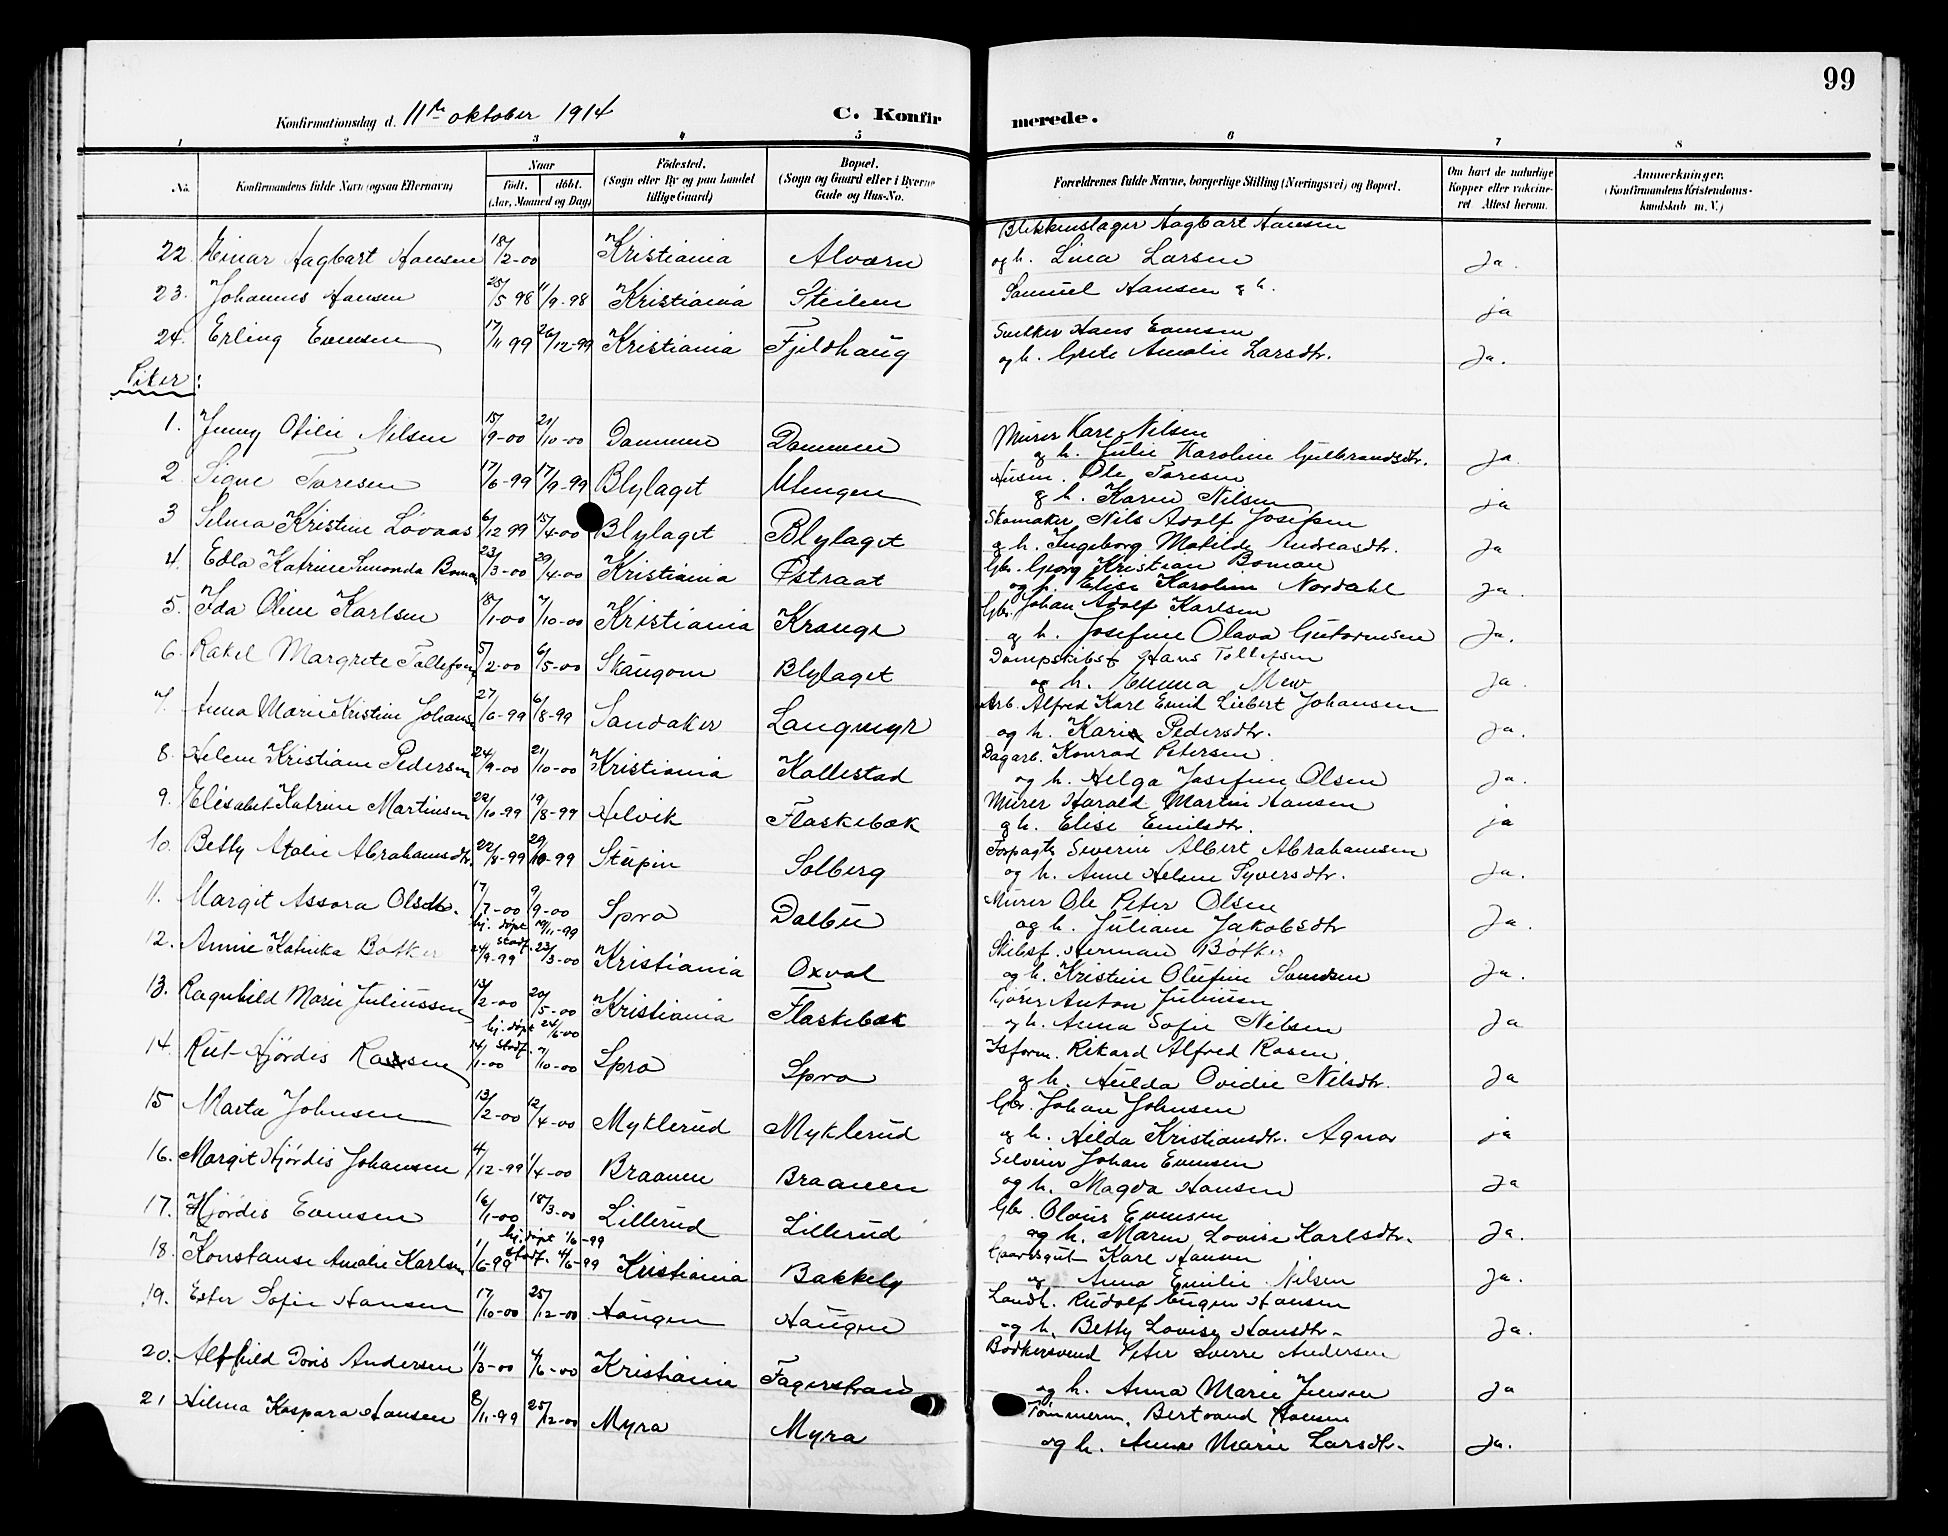 99
Konfirmationsdag d. 11te oktober 1914 C. Konfirmerede.
1 2 3 4 5 6 7 8
No. Konfirmandens fulde Navn (ogsaa Efternavn) Naar født. døbt. (Aar, Maaned og Dag) Fødested. (Sogn eller By og paa Landet tillige Gaard) Bopæl. (Sogn og Gaard eller i Byerne Gade og Hus-No. Forældrenes fulde Navne, borgerlige Stilling (Næringsvei) og Bopæl. Om havt de naturlige Kopper eller vaccineret Attest herom. Anmærkninger. (Konfirmandens Kristendomskundskab m. V.)
22 Einar Hagbart Hansen 18/2-00 Kristiania Alværn Blikkenslager Hagbart Hansen
og h. Lina Larsen Ja.
23. Johannes Hansen 25/5 98 11/9-98 Kristiania Steilene Samuel Hansen og h. ja
24. Erling Evensen 17/11 99 26/12-99 Kristiania Fjeldhaug Snekker Hans Evensen
og h. Grete Amalie Larsdtr. Ja.
Piker:
1. Jenny Otilie Nilsen 15/9-00 21/10-00 Dammen Dammen Murer Karl Nilsen
og h. Julie Karoline Gulbrandsdtr. ja
2 Signe Toresen 17/6-99 17/9-99 Blylaget Ulengen Husm. Ole Toresen
og h. Karen Nilsen ja
3 Selma Kristine Lövaas 6/12 99 15/4-00 Blylaget Blylaget Skomaker Nils Adolf Josefsen
og h. Ingeborg Matilde Andreasdtr. Ja
4. Edla Katrine Smonda Boman 23/3-00 29/4-00 Kristiania Østraat Gbr. Georg Kristian Boman
og h. Elise Karoline Nordahl Ja.
5. Ida Oline Karlsen 18/1-00 7/10-00 Kristiania Krange Gbr. Johan Adolf Karlsen
og h. Josefine Olava Gutormsen Ja.
6. Rakel Margrete Tollefsen 5/2-00 6/5-00 Skaugom Blylaget Dampskibsf Hans Tollefsen
og h. Emma Mew Ja.
7. Anna Marie Kristine Johansen 27/6-99 6/8-99 Sandaker Langmyr Arb. Alfred Karl Emil Liebert Johansen
og h. Kari Pedersdtr. Ja.
8. Helene Kristiane Pedersen 24/9-00 21/10-00 Kristiania Kallestad Dagarb. Konrad Petersen
og h. Helga Josefine Olsen Ja.
9. Elisabet Katrine Martinsen 22/10-99 19/8-99 Helvik Flaskebæk Murer Harald Martin Hansen
og h. Elise Emilsdtr. ja
10. Betty Atalie Abrahamsdtr. 22/8-99 29/10-99 Stupin Solberg Forpagtr Severin Albert Abrahamsen
og h. Anne Helene Syversdtr. Ja.
11. Margit Assora Olsdtr. 17/7-00 9/9-00 Spro Dalbu Murer Ole Peter Olsen
og h. Juliane Jakobsdtr Ja.
12. Annie Katinka Bøtker 24/9-99 hj. döpt 19/11-99 stadf. 23/3-00 Kristiania Oxval Skibsf. Herman Bøtker
og h. Kristine Olufine Samdsen Ja.
13. Ragnhild Marie Juliussen 13/2-00 20/5-00 Kristiania Flaskebæk Kjører Anton Juliussen
og h. Anna Sofie Nilsen Ja
14. Rut Hjördis Rosen 14/1-00 hj. döpt 24/6-00 stadf. 7/10-00 Spro Spro Isform. Rikard Alfred Rosen
og h. Hulda Ovidie Nilsdtr. Ja
15 Marta Johnsen 13/2-00 12/4-00 Myklerud Myklerud Gbr. Johan Johnsen
og h. Hilda Kristiansdtr. Agnor ja
16. Margit Hjördis Johansen 4/12-99 1/4-00 Braaten Braaten Selveier Johan Evensen
og h. Magda Hansen Ja
17. Hjördis Evensen 16/1-00 18/3-00 Lillerud Lillerud Gbr. Olaus Evensen
og h. Maren Lovise Karlsdtr. Ja.
18. Konstanse Amalie Karlsen 1/6-99 hj. döpt 1/6-99 stadf. 4/6-99 Kristiania Bakkely Gaardsgut Karl Hansen
og Anna Emilie Nilsen Ja.
19. Ester Sofie Hansen 17/10-00 25/12-00 Haugen Haugen Landh. Rudolf Eugen Hansen
og h. Betty Lovise Hansdtr. Ja.
20. Alfhild Doris Andersen 11/3-00 4/6-00 Kristiania Fagerstrand Bødkersvend Peter Sverre Andersen
og h. Anna Marie Jensen Ja
21 Hilma Kaspara Hansen 8/11-99 25/12-00 Myra Myra Tømmerm. Bertrand Hansen
og h. Anne Marie Larsdtr. Ja.